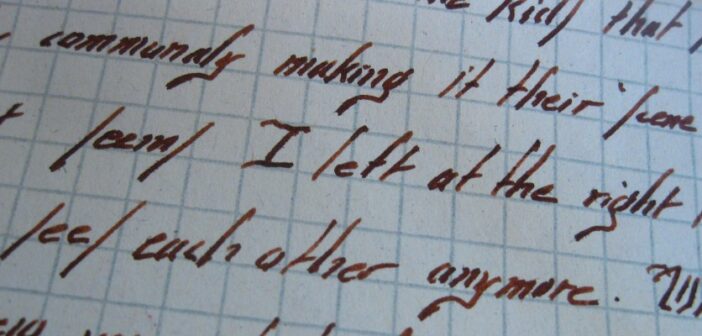 kids that
communaly making it their 'scene
seems I left at the right
sees each other anymore.